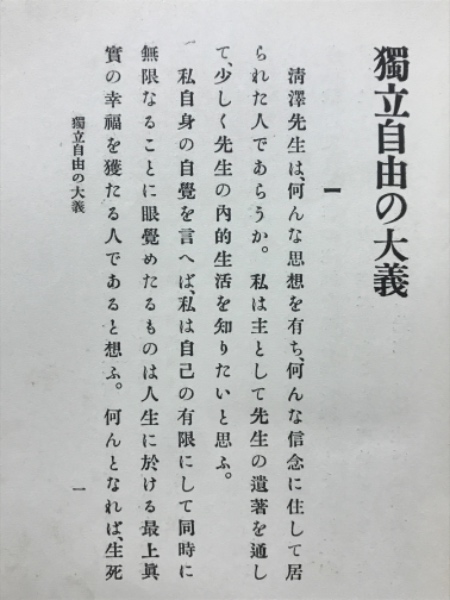 獨立自由の大義
一
淸澤先生は、何んな思想を有ち、何んな信念に住して居
られた人であらうか。私は主として先生の遺著を通し
て、少しく先生の內的生活を知りたいと思ふ。
私自身の自覺を言へば、私は自己の有限にして同時に
無限なることに眼覺めたるものは人生に於ける最上眞
實の幸福を獲たる人であると想ふ。何んとなれば、生死
獨立自由の大義
一